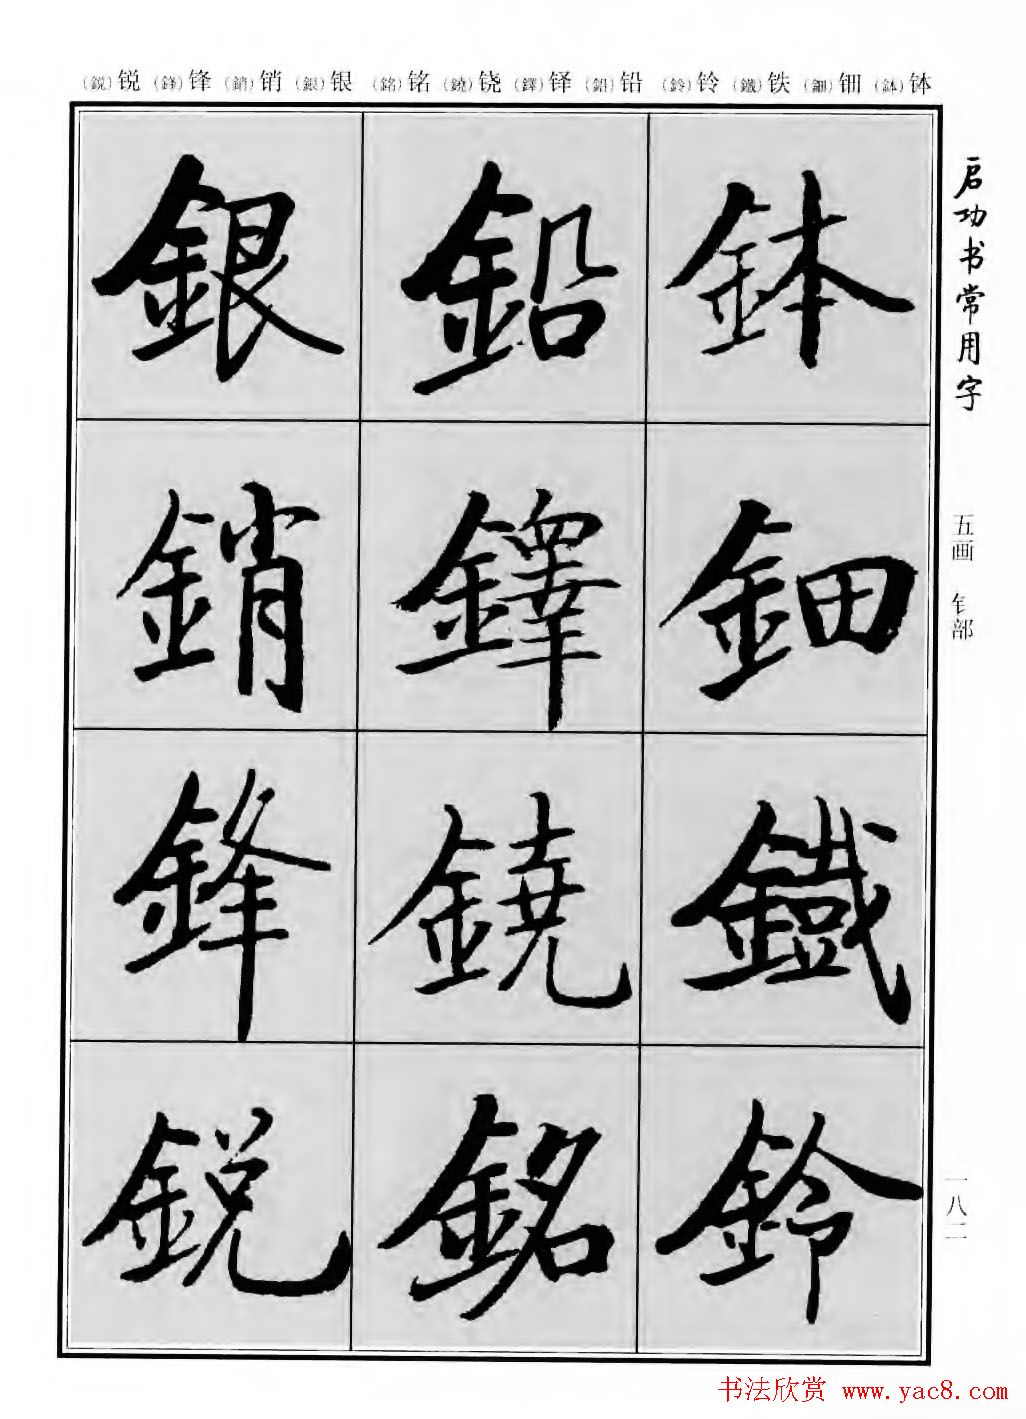 (鋭)锐 (鋒)锋 (銷)销 (銀)银 (銘)铭 (鐃)铙 (鐸)铎 (鉛)铅 (鈴)铃 (鐵)铁 (鈿)钿 (鉢)钵
启功书常用字
五画 钅部
一八二
鉢
鈿
鐵
鈴
鉛
鐸
鐃
銘
銀
銷
鋒
鋭
书法欣赏 www.yac8.com